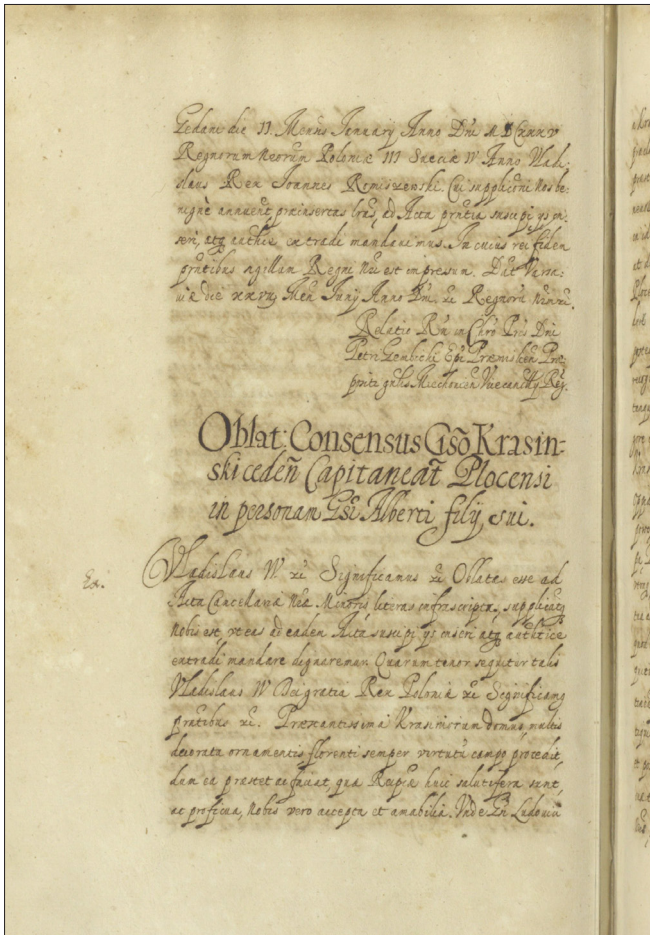 Gedani die 11. Mensis January Anno Dni MDCxxxv
Regnorum Nrorum Poloniæ III Sueciæ IV Anno Vladi:
slaus Rex Joannes Romiszewski. Cui supplicõni Nos be:
nignè annuent. præinsertas lras, ad Acta pñtia suscipi ys in:
seri, atq authẽ extradi mandavimus. In cuius rei fidem
pñtibus sigillum Regni Nri est impressum. Dat. Varsa:
viæ die xxvii Men Juny Anno Dni, xc Regnorũ Nrorũ.
Relatio Rñ in Chrõ Pris Dni
Petri Gembicki Epi Præmislieñ Præ
positi gñlis Miechovieñ Vicecancellÿ Reg.
Oblat: Consensus Gsõ Krasin-
ski cedeñ Capitaneat̃ Plocensi
in personam Gsi Alberti filij sui.
Ex.
Vladislaus IV xc Significamus xc Oblatas esse ad
Acta Cancellariæ Nræ Minoris literas infrascriptas, supplicatq
Nobis est, vt eas ad eadem Acta suscipi ys inseri atq autħtice
extradi mandare dignaremur. Quarum tenor sequitur talis
Vladislaus IV Dei gratia Rex Poloniæ xc Significamq
pñtibus xc. Præstantissima Krasiniorum domus, multis
decorata ornamentis florenti semper virtutũ campo procedit,
dum ea præstet ac faciat, quæ Reipcæ huic salutifera sunt,
ac proficua, Nobis vero accepta et amabilia. Vnde Gsi Ludovici